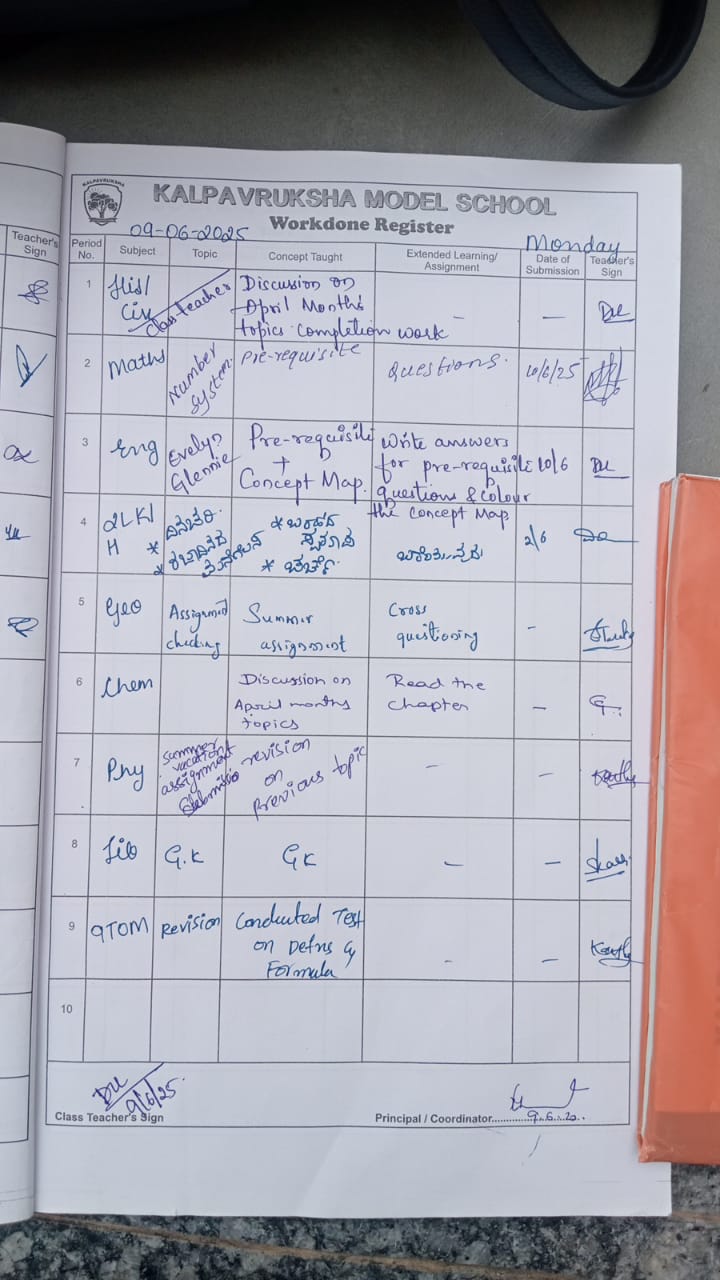 KALPAVRUKSHA
KALPAVRUKSHA MODEL SCHOOL
Workdone Register
09-06-2025 Monday
Teacher's Sign
Period No. Subject Topic Concept Taught Extended Learning/ Assignment Date of Submission Teacher's Sign
1 His/ Civ Class teacher Discussion on April Months topics completion work - -
2 Maths Number System. Pre-requisite Questions. 10/6/25
3 Eng Evelyn Glennie Pre-requisite + Concept Map. Write answers for pre-requisite questions & colour the concept Map 10/6
4 2LK/ H * * 2/6
5 Geo Assignment checking Summer assignment Cross questioning -
6 Chem Discussion on April months topics Read the chapter - G.
7 Phy Summer vacation assignment revision on Previous topic - -
8 Lib G.K GK - -
9 9TOM Revision Conducted Test on Defns & Formula - -
10
9/6/25
Class Teacher's Sign
Principal / Coordinator
9.6.20